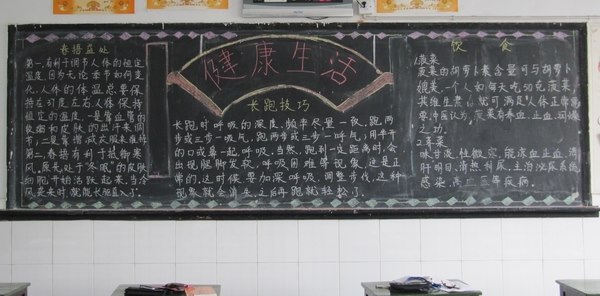 春捂益处
第一,有利于调节人体的恒定
温度,因为无论季节如何变
化,人体的体温总要保
持在37度左右,人体保持
恒定的温度,一是靠血管的
收缩和皮肤的出汗来调
节;二是靠增减衣服来维持
第二,春捂有利于抵御寒
风。原先处于“冬眠”的皮肤
细胞开始活跃起来,当冷
风袭来时,就能长驱直入了.
健康生活
长跑技巧
长跑时呼吸的深度,频率尽量一致,跑两
步或三步一吸气,跑两步或三步一呼气,用半开
的口或鼻一起呼吸,当然,跑到一定距离时,会
出现腿脚发软,呼吸困难等现象,这是正
常的,这时候要加深呼吸,调整步伐,这种
现象就会消失,之后再跑就轻松了.
饮 食
1.菠菜
菠菜的胡萝卜素含量可与胡萝卜
媲美.一个人如每天吃50克菠菜,
其维生素 就可满足人体正常需
要.中医认为,菠菜有养血.止血.润燥
之功.
2.荠菜
味甘淡、性微寒,能凉血止血、清
肝明目、清热利尿,主治泌尿系统
感染、高血压等疾病.